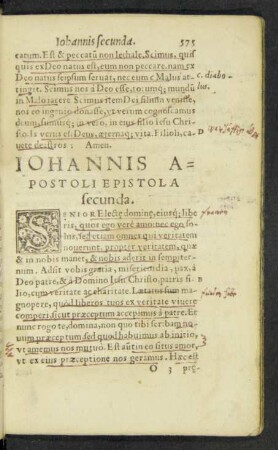 Iohannis secunda. 575
catum. Est & peccatũ non lethale. Scimus, quisquis
quis ex Deo natus est, eum non peccare, nam ex
Deo natus seipsum seruat, nec eum ille Malus attingit.
tingit. Scimus nos à Deo esse, totumq; mundũ
in Malo iacere Scimus itē Dei filium venisse,
nos eo ingenio donasse, vt verum cognoscamus
dium, sumusq; in vero, in eius filio Iesu Christo.
sto. Is verus est Deus, æternaq; vita. Filioli, cauete
uete deastros: Amen.
IOHANNIS A=
POSTOLI EPISTOLA
secunda.
SENIOR Electę dominę, eiusq; liberis,
ris, quos ego verè amo: nec ego solus,
lus, sed etiam omnes qui veritatem
nouerunt, propter veritatem, quæ
& in nobis manet, & nobis aderit in sempiternum.
num. Adsit vobis gratia, misericordia, pax, à
Deo patre, & à Domino Iesu Christo, patris filio,
lio, cum veritate ac charitate. Lætatus sum magnopere,
gnopere, quod liberos tuos ex veritate viuere
comperi, sicut præceptum accepimus à patre. Et
nunc rogo te, domina, non quo tibi scribam nouum
uum præceptum, sed quod habuimus ab initio,
vt amemus nos mutuo. Est autē in eo situs amor,
vt ex eius præceptione nos geramus. Hæc est
O 3 præ-